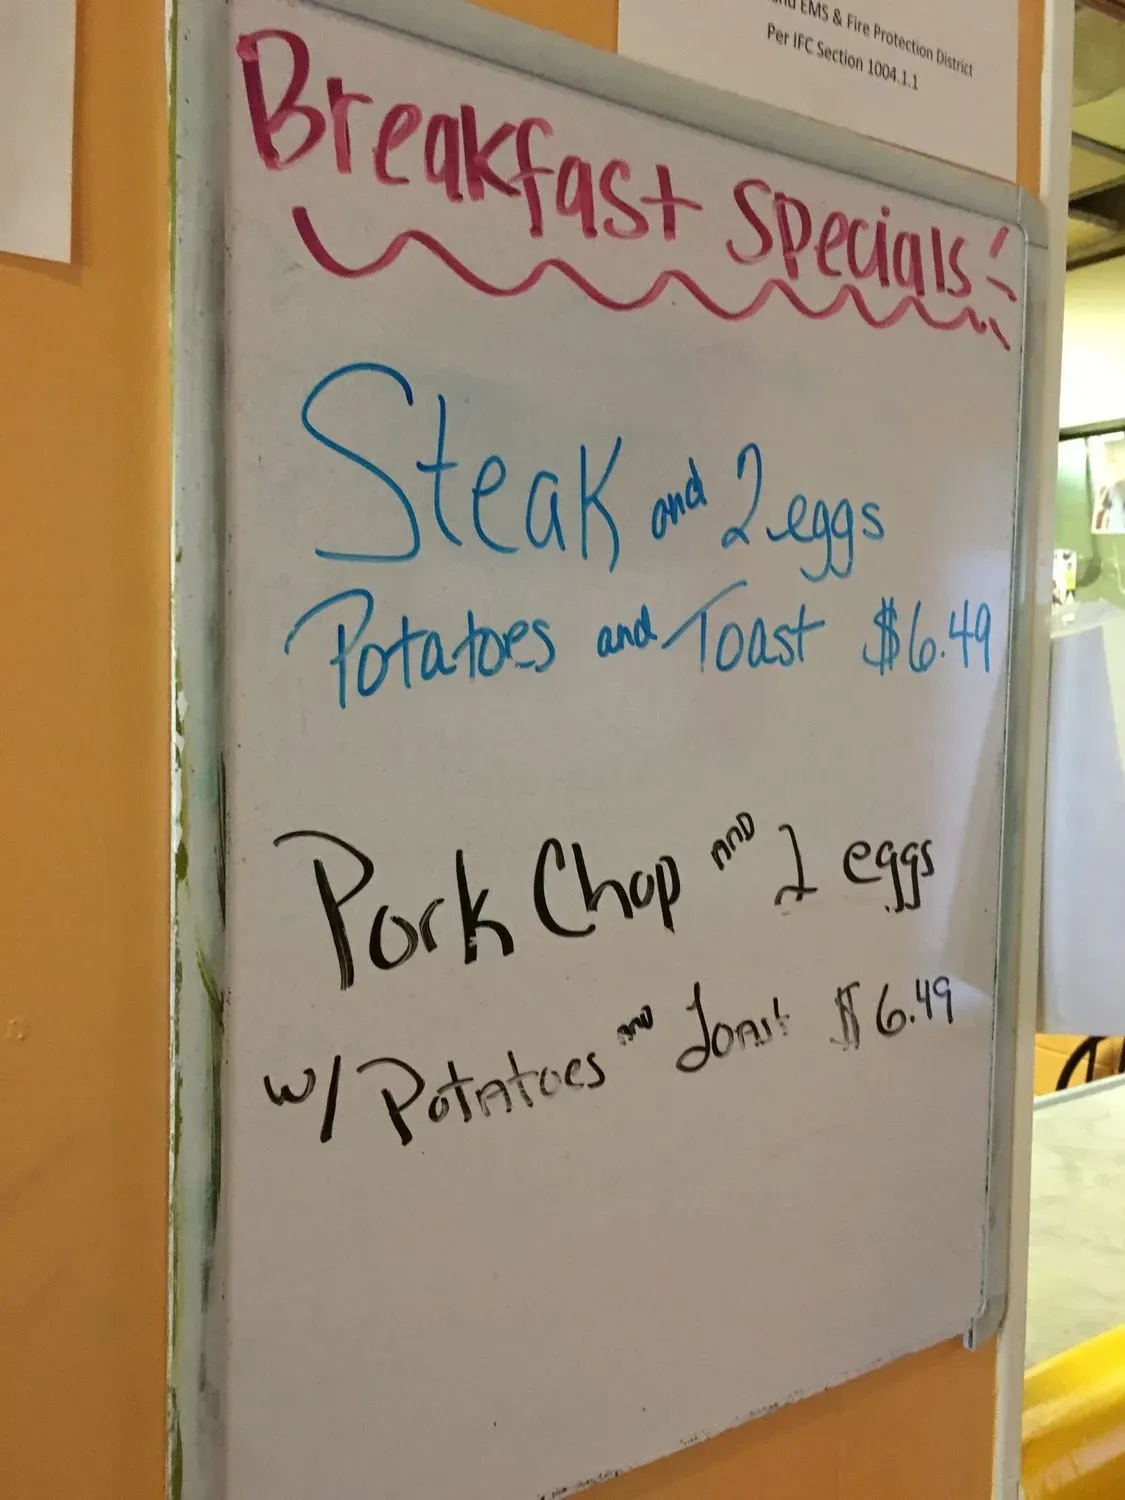 EMS & Fire Protection District
Per IFC Section 1004.1.1
Breakfast Specials
Steak and 2 eggs
Potatoes and Toast $6.49
Pork Chop AND 2 eggs
w/ Potatoes AND Toast $6.49